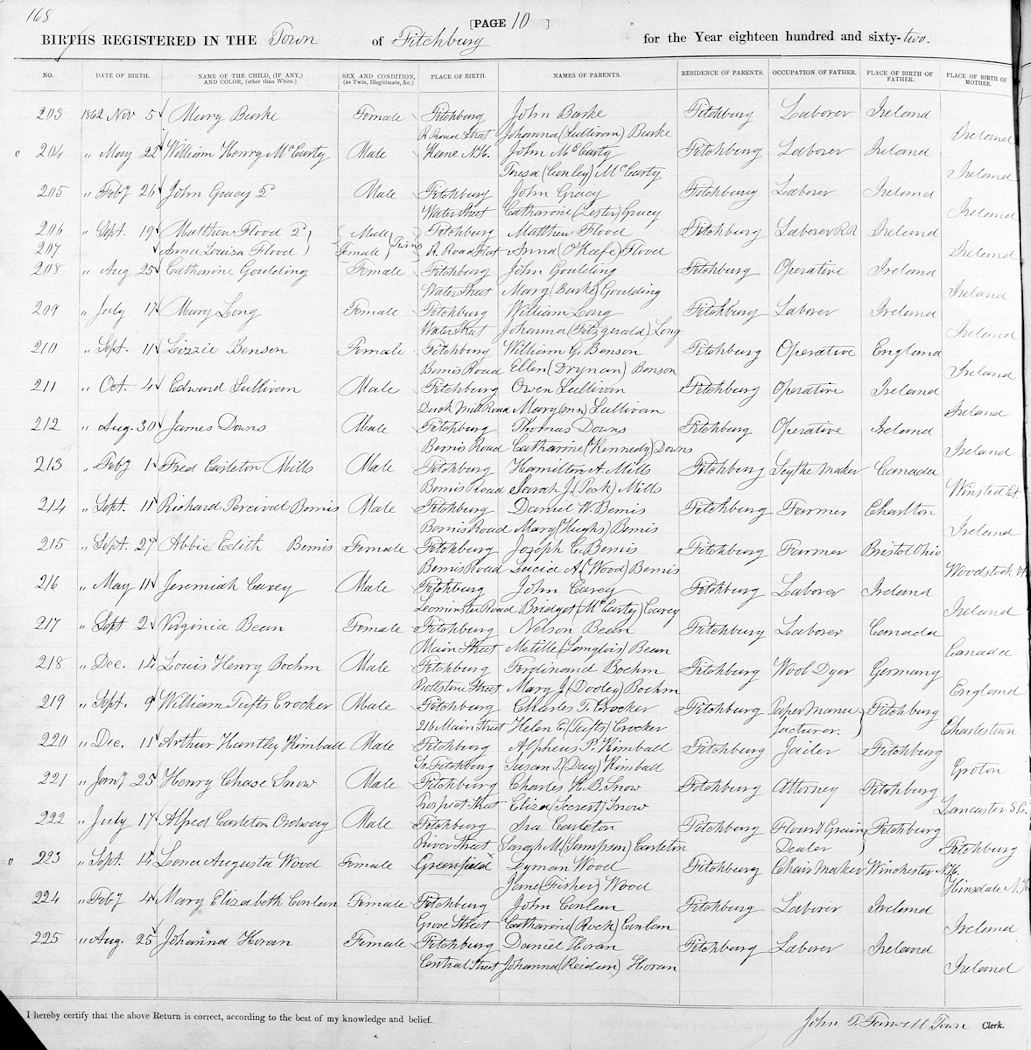 168
[PAGE 10 ]
BIRTHS REGISTERED IN THE Town of Fitchburg for the Year eighteen hundred and sixty-two.
NO. DATE OF BIRTH. NAME OF THE CHILD, (IF ANY,) AND COLOR, (other than White.) SEX AND CONDITION, (as Twin, Illegitimate, &c.) PLACE OF BIRTH. NAMES OF PARENTS. RESIDENCE OF PARENTS. OCCUPATION OF FATHER. PLACE OF BIRTH OF FATHER. PLACE OF BIRTH OF MOTHER.
203 1862 Nov 5 Mary Burke Female Fitchburg John Burke Fitchburg Laborer Ireland
R. Road Street Johanna (Sullivan) Burke Ireland
204 " May 22 William Henry McCarty Male Keene N.H. John McCarty Fitchburg Laborer Ireland
Teresa (Conley) McCarty Ireland
205 " Feby 26 John Gracy Male Fitchburg John Gracy Fitchburg Laborer Ireland
Water Street Catharine (Lester) Gracy Ireland
206 " Sept. 19 Matthew Flood 2 Male Twins Fitchburg Matthew Flood Fitchburg Laborer R.R Ireland
207 Anna Louisa Flood Female R. Road Street Anna (O'Keefe) Flood Ireland
208 " Aug 25 Catharine Goulding Female Fitchburg John Goulding Fitchburg Operative Ireland
Water Street Mary (Burke) Goulding Ireland
209 " July 17 Mary Long Female Fitchburg William Long Fitchburg Laborer Ireland
Water Street Johanna (Fitzgerald) Long Ireland
210 " Sept. 11 Lizzie Benson Female Fitchburg William G. Benson Fitchburg Operative England
Bemis Road Ellen (Drynan) Benson Ireland
211 " Oct. 4 Edward Sullivan Male Fitchburg Owen Sullivan Fitchburg Operative Ireland
Duck Mill Road Mary (nn) Sullivan Ireland
212 " Aug. 30 James Downs Male Fitchburg Thomas Downs Fitchburg Operative Ireland
Bemis Road Catharine (Kennedy) Downs Ireland
213 " Feby 1 Fred Carleton Mills Male Fitchburg Hamilton A. Mills Fitchburg Scythe Maker Canada
Bemis Road Sarah J. (Peck) Mills Winsted Ct
214 " Sept. 11 Richard Percival Bemis Male Fitchburg Daniel W. Bemis Fitchburg Farmer Charlton
Bemis Road Mary (Hughs) Bemis Ireland
215 " Sept. 27 Abbie Edith Bemis Female Fitchburg Joseph C. Bemis Fitchburg Farmer Bristol Ohio
Bemis Road Lucid A. (Wood) Bemis Woodstock Vt
216 " May 11 Jeremiah Carey Male Fitchburg John Carey Fitchburg Laborer Ireland
Leominster Road Bridget (McCarty) Carey Ireland
217 " Sept 2 Virginia Bean Female Fitchburg Nelson Bean Fitchburg Laborer Canada
Main Street Metille (Langlois) Bean Canada
218 " Dec. 14 Louis Henry Boehm Male Fitchburg Ferdinand Boehm Fitchburg Wool Dyer Germany
Rollstone Street Mary J. (Dooley) Boehm England
219 " Sept. 9 William Tufts Crocker Male Fitchburg Charles T. Crocker Fitchburg Paper Manu Fitchburg
216 Main Street Helen E. (Tufts) Crocker facturer. Charlestown
220 " Dec. 11 Arthur Huntley Kimball Male Fitchburg Alpheus P. Kimball Fitchburg Jailer Fitchburg
So. Fitchburg Susan S. (Day) Kimball Groton
221 " Jany 25 Henry Chase Snow Male Fitchburg Charles H. B. Snow Fitchburg Attorney Fitchburg
Prospect Street Eliza (Secrest) Snow Lancaster S.C.
222 " July 17 Alfred Carleton Ordway Male Fitchburg Ira Carleton Fitchburg Flour & Grain Fitchburg
River Street Sarah M. (Sampson) Carleton Dealer Fitchburg
223 " Sept. 14 Lona Augusta Wood Female Greenfield Lyman Wood Fitchburg Chair Maker Winchester N.H.
Jane (Fisher) Wood Hinsdale N.H.
224 " Feby 4 Mary Elizabeth Conlan Female Fitchburg John Conlan Fitchburg Laborer Ireland
Grove Street Catharine (Rock) Conlan Ireland
225 " Aug. 25 Johanna Horan Female Fitchburg Daniel Horan Fitchburg Laborer Ireland
Central Street Johanna (Reideen) Horan Ireland
I hereby certify that the above Return is correct, according to the best of my knowledge and belief.
John T. Farwell Town Clerk.